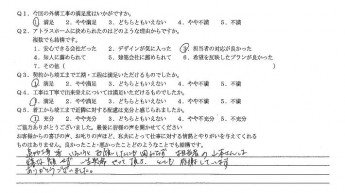 Q1、今回の外構工事の満足度はいかがですか。
1．満足 2．やや満足 3．どちらともいえない 4．やや不満 5．不満
Q2、アトラスホームに決められたのはどのような理由からですか。
複数でも結構です。
1．安心できる会社だった 2．デザインが気に入った 3．担当者の対応が良かった
4．知人に薦められて 5．建築会社に薦められて 6．希望を反映したプランが良かった
7．その他
Q3、契約から竣工まで工期・工程は満足いただけるものでしたか。
1．満足 2．やや満足 3．どちらともいえない 4．やや不満 5．不満
Q4、工事は丁寧で出来栄えについては満足いただけるものでしたか。
1．満足 2．やや満足 3．どちらともいえない 4．やや不満 5．不満
Q5、着工から竣工まで近隣に対する配慮は充分と感じられましたか。
1．満足 2．やや満足 3．どちらともいえない 4．やや不満 5．不満
ご協力ありがとうございました。最後に皆様の声を聞かせてください
お客様からの喜びの声、お叱りの声は、私共にとって仕事に対する情熱とやりがいを与えてくれる
ものに他なりません。良かったこと・悪かったことどのようなことでも結構です。
お願いして
感謝しています
ありがとうございました。